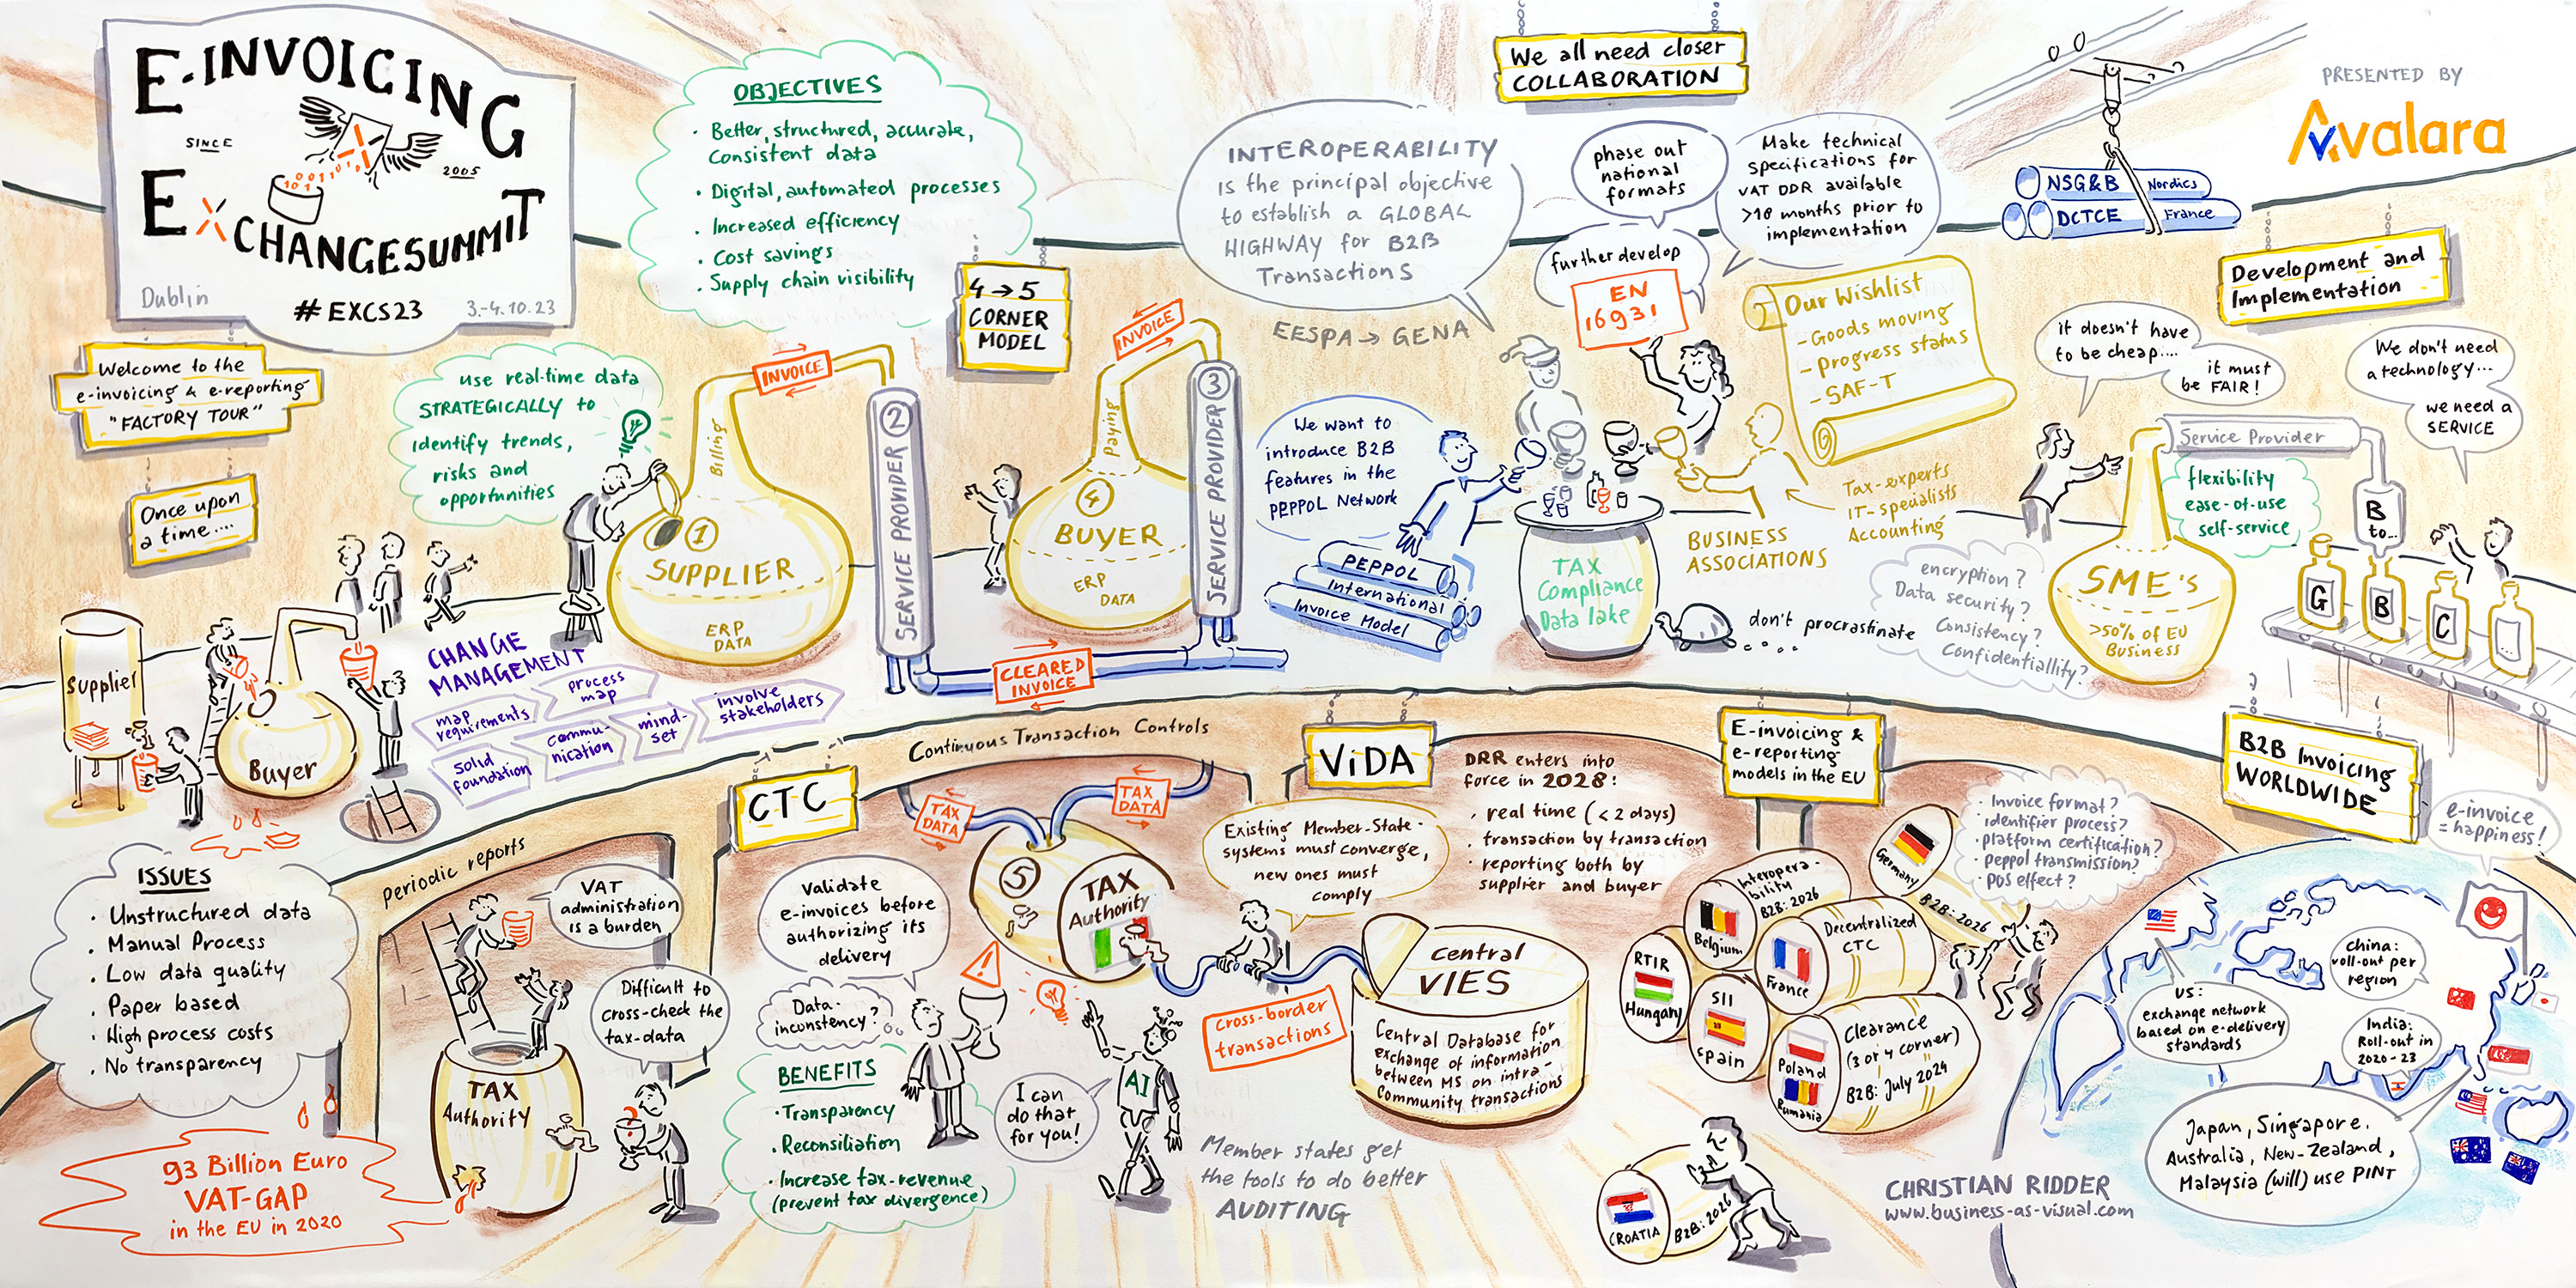 E-INVOICING
SINCE
2005
EXCHANGESUMMIT
Dublin
#EXCS23
3.-4.10.23
Welcome to the
e-invoicing & e-reporting
"FACTORY TOUR"
Once upon
a time....
Supplier
Buyer
OBJECTIVES
· Better, structured, accurate,
Consistent data
· Digital, automated processes
· Increased efficiency
· Cost savings
· Supply chain visibility
use real-time data
STRATEGICALLY to
identify trends,
risks and
opportunities
4→5
CORNER
MODEL
CHANGE
MANAGEMENT
map
requirements
process
map
solid
foundation
commu-
nication
mind-
set
involve
stakeholders
1
SUPPLIER
ERP
DATA
Billing
INVOICE
2
SERVICE PROVIDER
INVOICE
Paying
4
BUYER
ERP
DATA
3
SERVICE PROVIDER
CLEARED
INVOICE
We all need closer
COLLABORATION
INTEROPERABILITY
is the principal objective
to establish a GLOBAL
HIGHWAY for B2B
Transactions
EESPA→GENA
phase out
national
formats
Make technical
specifications for
VAT DDR available
>18 months prior to
implementation
further develop
EN
16931
Our Wishlist
- Goods moving
- Progress status
- SAF-T
We want to
introduce B2B
features in the
PEPPOL Network
PEPPOL
International
Invoice Model
TAX
Compliance
Data lake
BUSINESS
ASSOCIATIONS
Tax-experts
IT-specialists
Accounting
don't procrastinate
encryption?
Data security?
Consistency?
Confidentiallity?
PRESENTED BY
Avalara
NSG&B
Nordics
DCTCE
France
Development and
Implementation
it doesn't have
to be cheap....
it must
be FAIR!
We don't need
a technology...
we need a
SERVICE
Service Provider
flexibility
ease-of-use
self-service
SME's
>50% of EU
Business
B
to...
G
B
C
ISSUES
· Unstructured data
· Manual Process
· Low data quality
· Paper based
· High process costs
· No transparency
93 Billion Euro
VAT-GAP
in the EU in 2020
periodic reports
VAT
administration
is a burden
Difficult to
cross-check the
tax-data
TAX
Authority
CTC
Continuous Transaction Controls
TAX
DATA
TAX
DATA
5
TAX
Authority
validate
e-invoices before
authorizing its
delivery
Data-
inconstency?
BENEFITS
· Transparency
· Reconsiliation
· Increase tax-revenue
(prevent tax divergence)
I can
do that
for you!
AI
ViDA
DRR enters into
force in 2028:
· real time (<2 days)
· transaction by transaction
· reporting both by
supplier and buyer
Existing Member-State-
systems must converge,
new ones must
comply
cross-border
transactions
Central
VIES
Central Database for
exchange of information
between MS on intra-
Community transactions
Member states get
the tools to do better
AUDITING
E-invoicing &
e-reporting
models in the EU
Interopera-
bility
B2B: 2026
Belgium
RTIR
Hungary
Decentralized
CTC
France
SII
Spain
Clearance
(3 or 4 corner)
B2B: July 2024
Poland
Rumania
Germany
B2B: 2026
· Invoice format?
· identifier process?
· platform certification?
· peppol transmission?
· POS effect?
CROATIA
B2B: 2026
B2B Invoicing
WORLDWIDE
e-invoice
= happiness!
US:
exchange network
based on e-delivery
standards
China:
roll-out per
region
India:
Roll-out in
2020-23
Japan, Singapore,
Australia, New-Zealand,
Malaysia (will) use PINT
CHRISTIAN RIDDER
www.business-as-visual.com